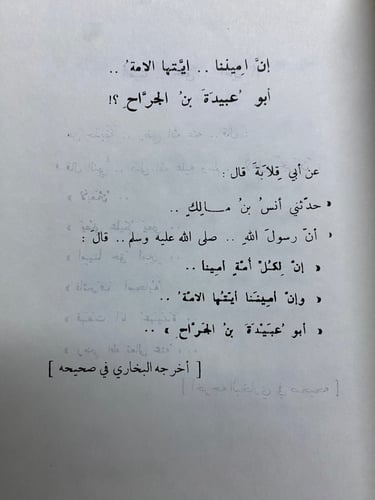 إنَّ امِينَنا .. ايَّتها الامةُ ..
أبو ُعبيدَةَ بنُ الجرَّاحِ ؟!
عن أبي قِلابَةَ قال :
« حدّثني أنسُ بنُ مــالِكٍ ..
« أنّ رسولَ اللهِ .. صلى الله عليه وسلم .. قالَ :
« إنّ لِكلّ أمّةٍ أمِينا ..
« وإنّ أمِينَنا أيّتُها الامّةُ ..
« أبو ُعبَيْدةَ بنُ الجرّاحِ » ..
[ أخرجه البخاري في صحيحه ]